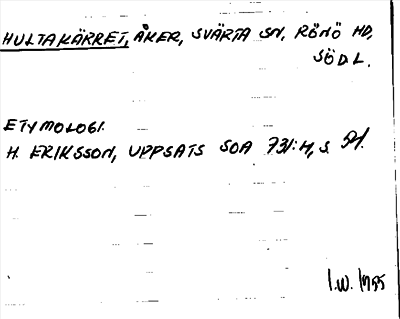 HULTAKÄRRET, ÅKER, SVÄRTA SN, RÖNÖ HD,
SÖDL.
ETYMOLOGI.
H. ERIKSSON, UPPSATS SOA 731:4, S.
I.W. 1955